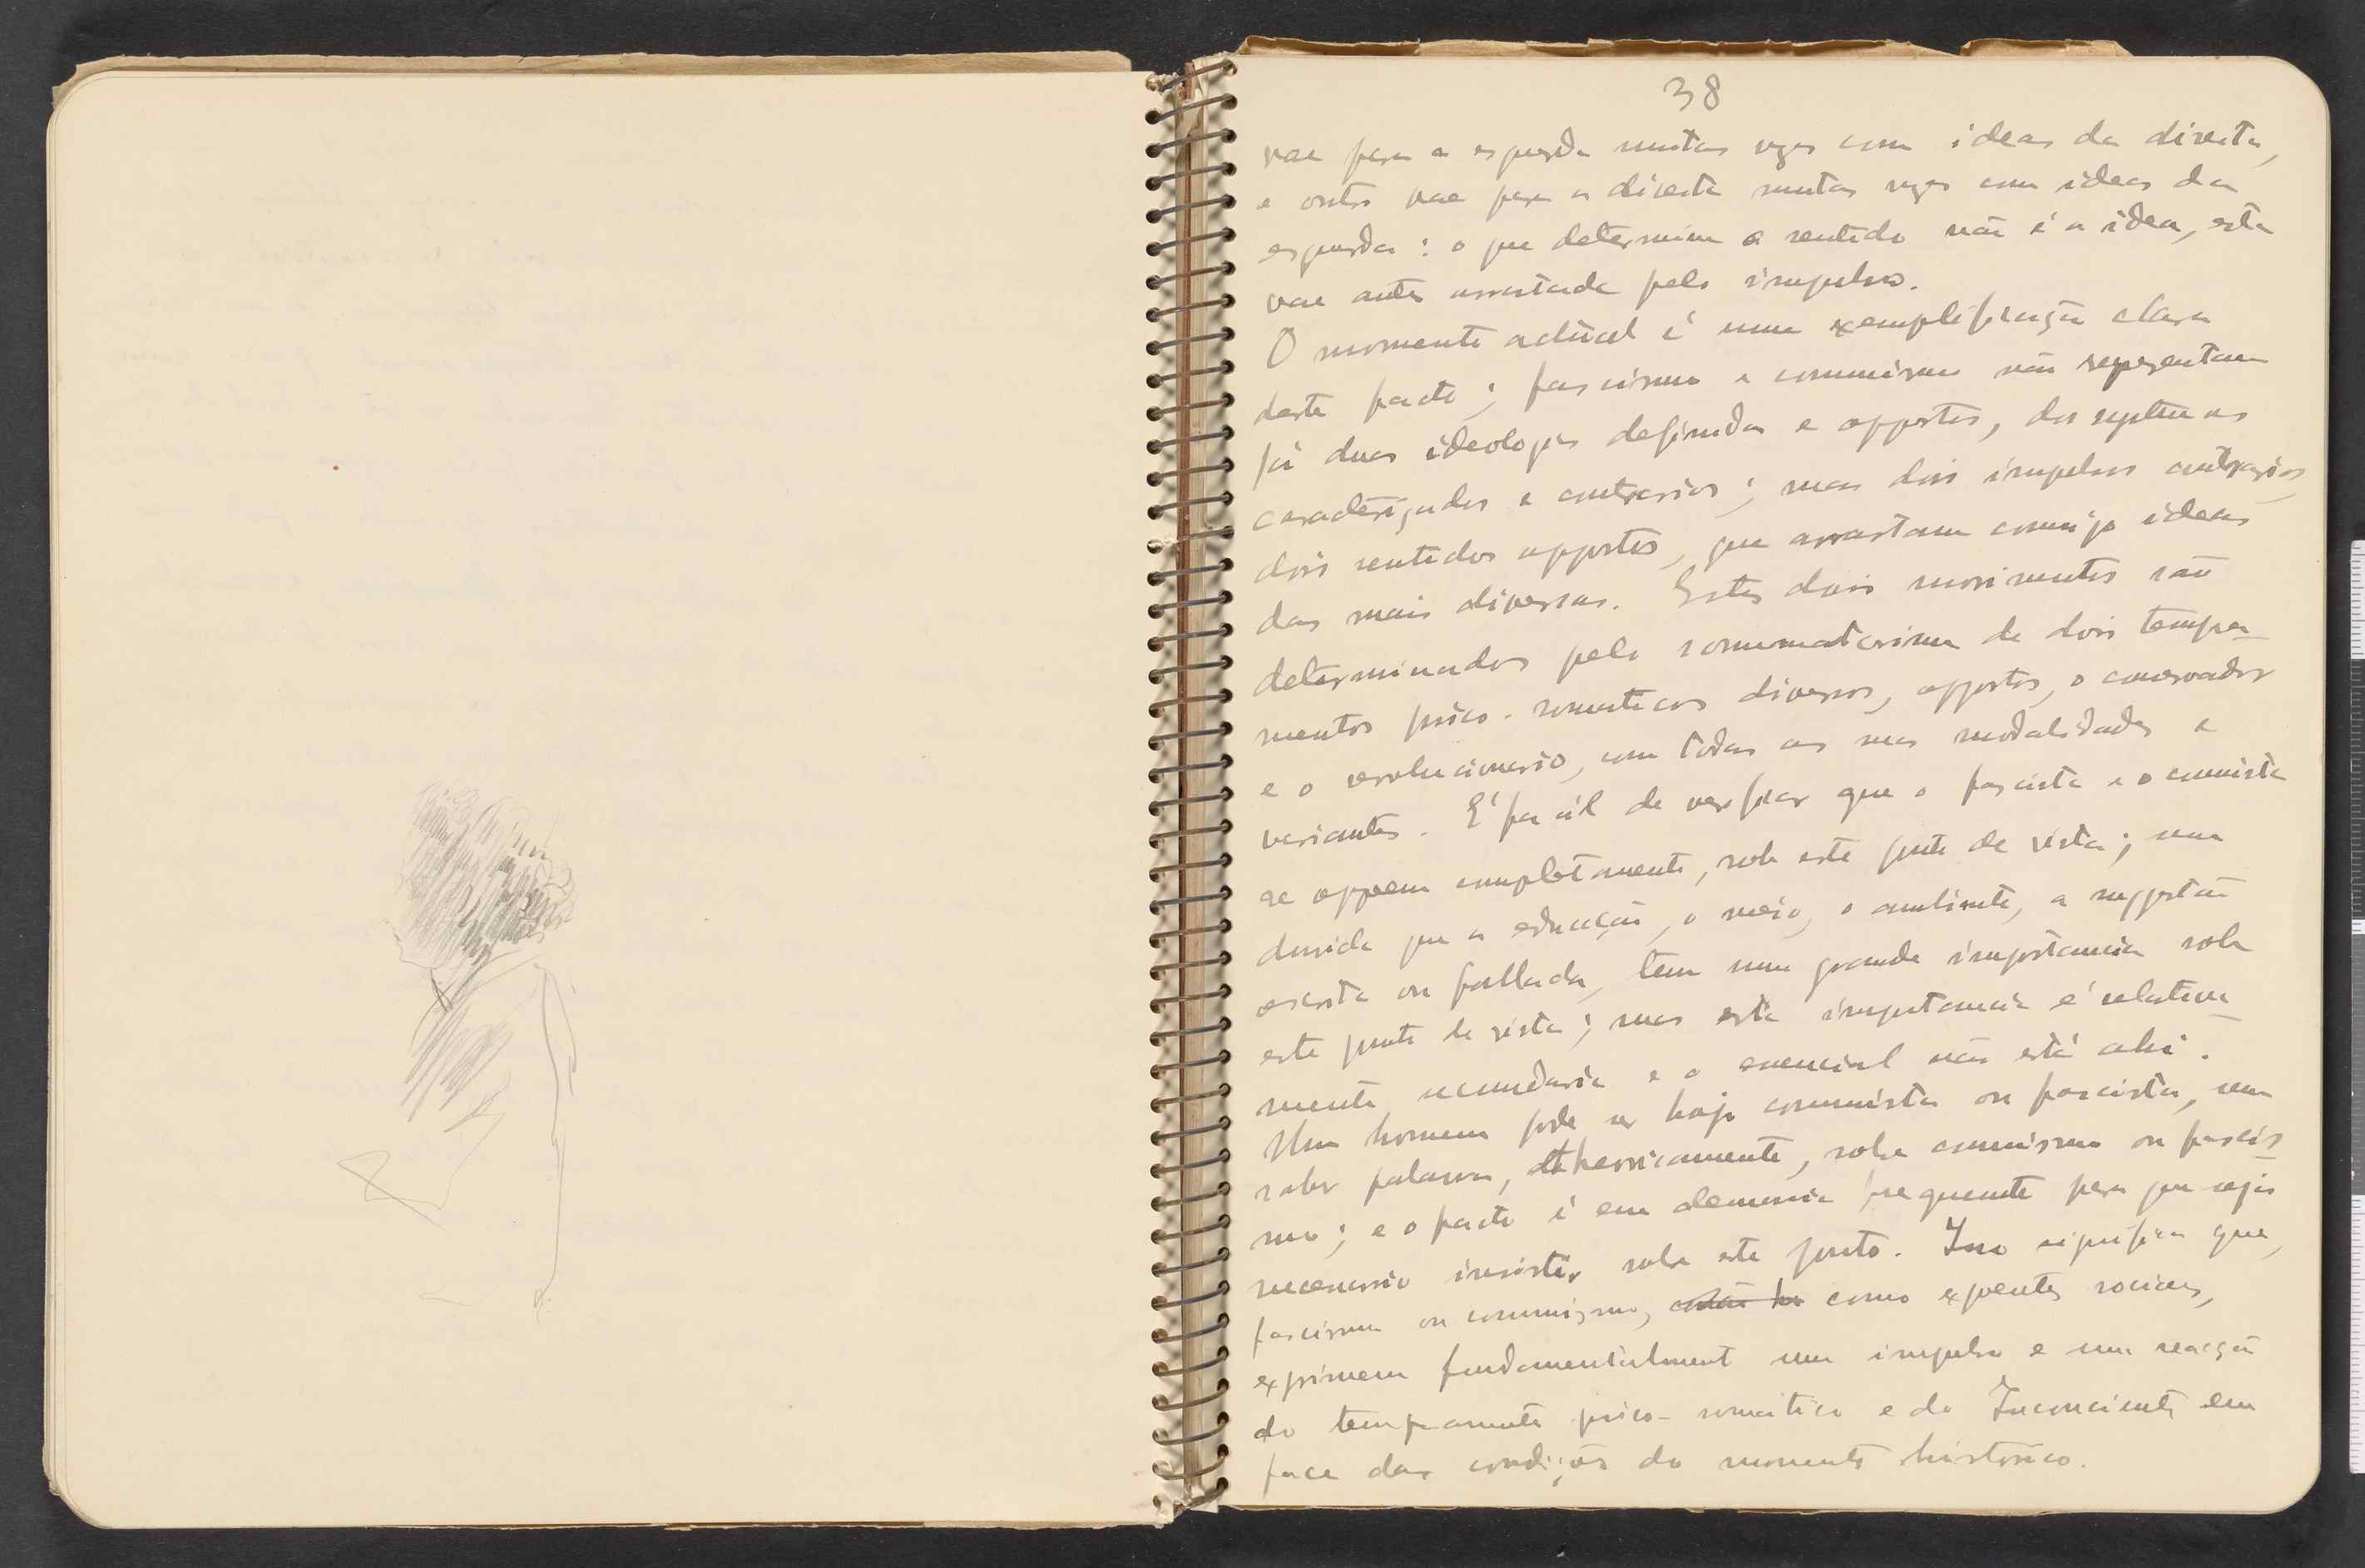 38
vae para a esquerda muitas vezes com ideas da direita,
e outro vae para a direita muitas vezes com ideas da
esquerda: o que determina o sentido não é a idea, esta
vae antes arrastada pelo impulso.
O momento actual é uma exemplificação clara
deste facto; fascismo e communismo não representam
já duas ideologias definidas e oppostas, dos systemas
caracterizados e contrarios; mas dois impulsos contrarios,
dois sentidos oppostos, que arrastam comsigo ideas
das mais diversas. Estes dois movimentos são
determinados pelo de dois tempera-
mentos psico-somaticos diversos, oppostos, o conservador
e o revolucionario, com todas as suas modalidades e
variantes. É facil de verificar que o fascista e o comunista
se oppoem completamente, sob este ponto de vista; sem
duvida que a educação, o meio, o ambiente, a suggestão
escrita ou fallada, tem uma grande importancia sob
este ponto de vista; mas esta importancia é relativa-
mente secundaria e o essencial não está ahi.
Um homem pode ser hoje communista ou fascista, sem
saber palavra, theoricamente, sobre comunismo ou fascis-
mo; e o facto é em demasia frequente para que seja
necessario insistir sobre este ponto. Isso significa que,
fascismo ou communismo, como expoentes sociaes,
exprimem fundamentalment um impulso e uma reacção
do temperamento psico-somatico e do Inconciente em
face das condições do momento historico.